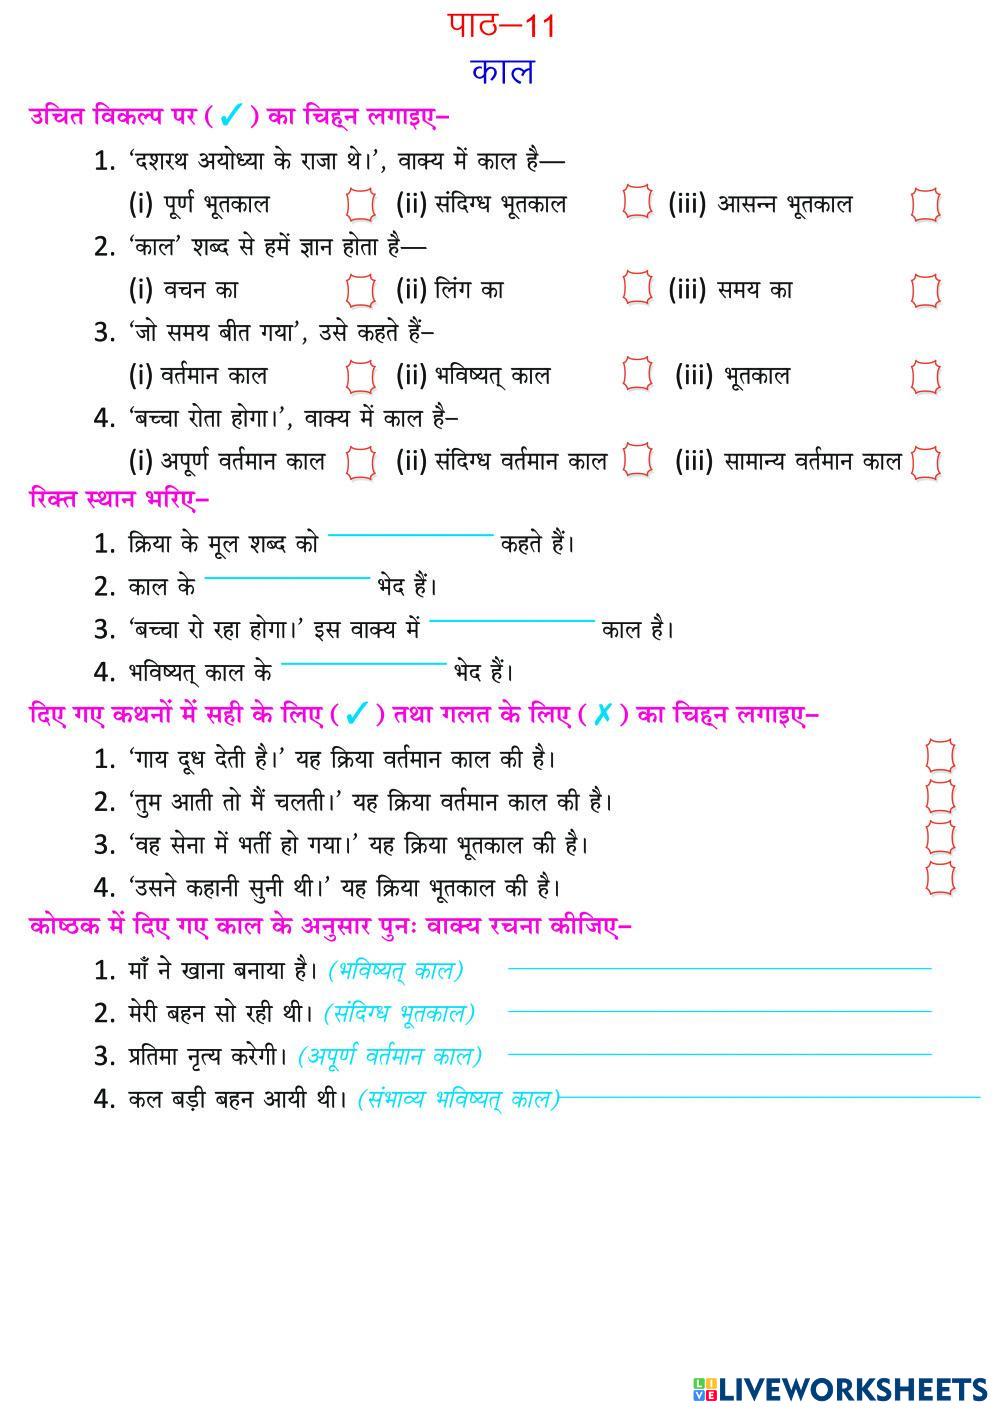 पाठ–11
काल
उचित विकल्प पर ( ✓ ) का चिह्न लगाइए–
1. ‘दशरथ अयोध्या के राजा थे।’, वाक्य में काल है—
(i) पूर्ण भूतकाल (ii) संदिग्ध भूतकाल (iii) आसन्न भूतकाल
2. ‘काल’ शब्द से हमें ज्ञान होता है—
(i) वचन का (ii) लिंग का (iii) समय का
3. ‘जो समय बीत गया’, उसे कहते हैं–
(i) वर्तमान काल (ii) भविष्यत् काल (iii) भूतकाल
4. ‘बच्चा रोता होगा।’, वाक्य में काल है–
(i) अपूर्ण वर्तमान काल (ii) संदिग्ध वर्तमान काल (iii) सामान्य वर्तमान काल
रिक्त स्थान भरिए–
1. क्रिया के मूल शब्द को ____________ कहते हैं।
2. काल के ____________ भेद हैं।
3. ‘बच्चा रो रहा होगा।’ इस वाक्य में ____________ काल है।
4. भविष्यत् काल के ____________ भेद हैं।
दिए गए कथनों में सही के लिए ( ✓ ) तथा गलत के लिए ( ✗ ) का चिह्न लगाइए–
1. ‘गाय दूध देती है।’ यह क्रिया वर्तमान काल की है।
2. ‘तुम आती तो मैं चलती।’ यह क्रिया वर्तमान काल की है।
3. ‘वह सेना में भर्ती हो गया।’ यह क्रिया भूतकाल की है।
4. ‘उसने कहानी सुनी थी।’ यह क्रिया भूतकाल की है।
कोष्ठक में दिए गए काल के अनुसार पुनः वाक्य रचना कीजिए–
1. माँ ने खाना बनाया है। (भविष्यत् काल) ____________
2. मेरी बहन सो रही थी। (संदिग्ध भूतकाल) ____________
3. प्रतिमा नृत्य करेगी। (अपूर्ण वर्तमान काल) ____________
4. कल बड़ी बहन आयी थी। (संभाव्य भविष्यत् काल) ____________
LIVE LIVEWORKSHEETS